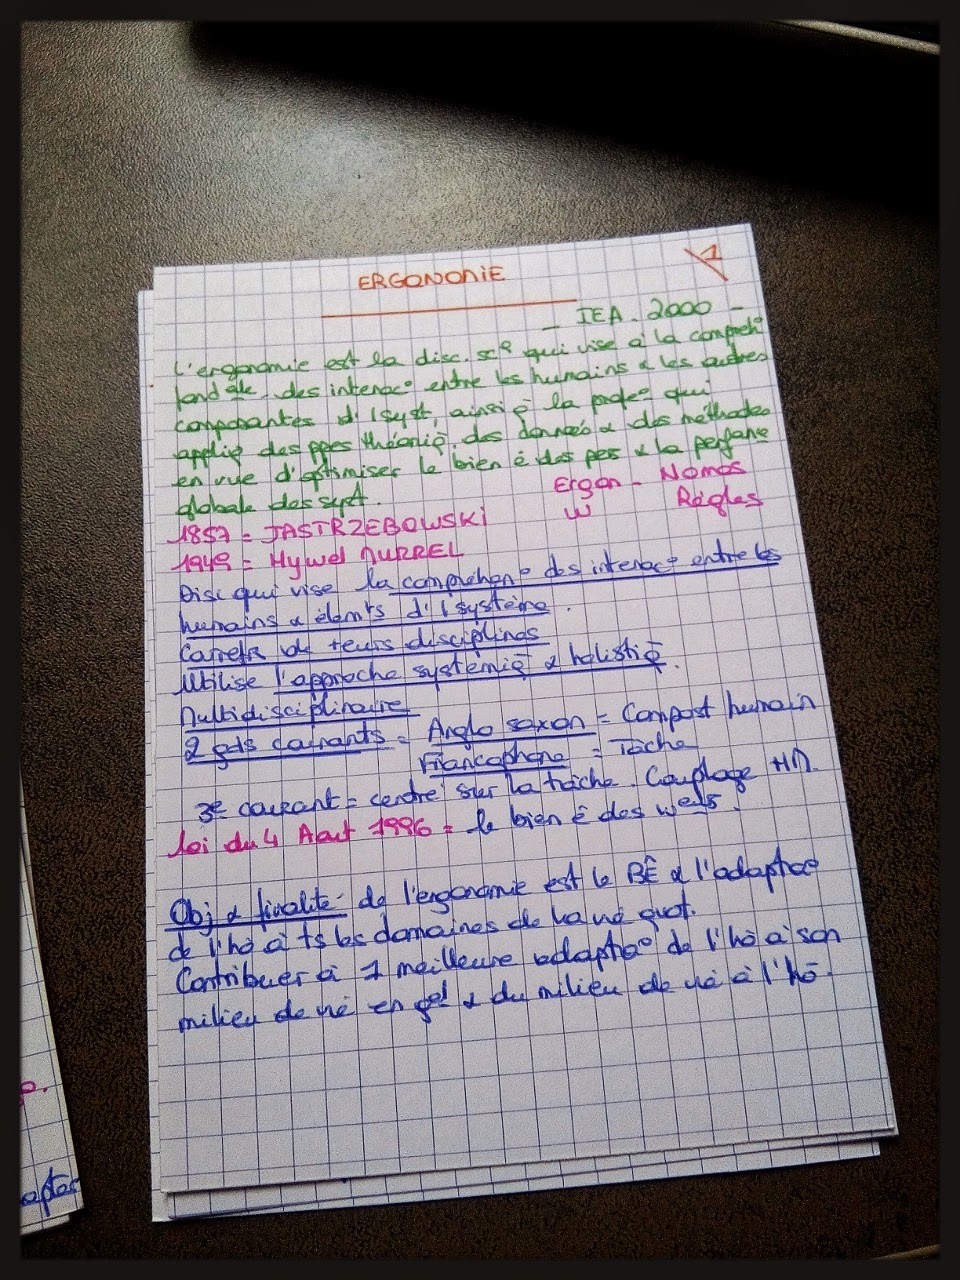 ERGONOMIE
1
- IEA. 2000 -
L'ergonomie est la disc. sc° qui vise à la compreh°
fond ale des interac° entre les humains & les autres
composantes d'1 syst, ainsi q̄ la profes° qui
appliq̄ des ppes théoriq̄, des données & des méthodes
en vue d'optimiser le bien ê des pes & la perfance
globale des syst.
Ergon - Nomos
W Règles
1857 = JASTRZEBOWSKI
1949 = Hywel MURREL
Disc qui vise la compréhen° des interac° entre les
humains & élémts d'1 système.
Carrefr de +eurs disciplines
Utilise l'approche systémiq̄ & holistiq̄.
Multidisciplinaire
2 gds courants = Anglo saxon = Compost humain
Francophone = Tâche
3e courant = centré sur la tâche. Couplage HM.
Loi du 4 Aout 1996 = le bien ê des weurs.
Obj & finalité: de l'ergonomie est le BÊ & l'adaptao
de l'hō à ts les domaines de la vie quot.
Contribuer à 1 meilleure adaptao de l'hō à son
milieu de vie en gal & du milieu de vie à l'hō.
p.
aptao